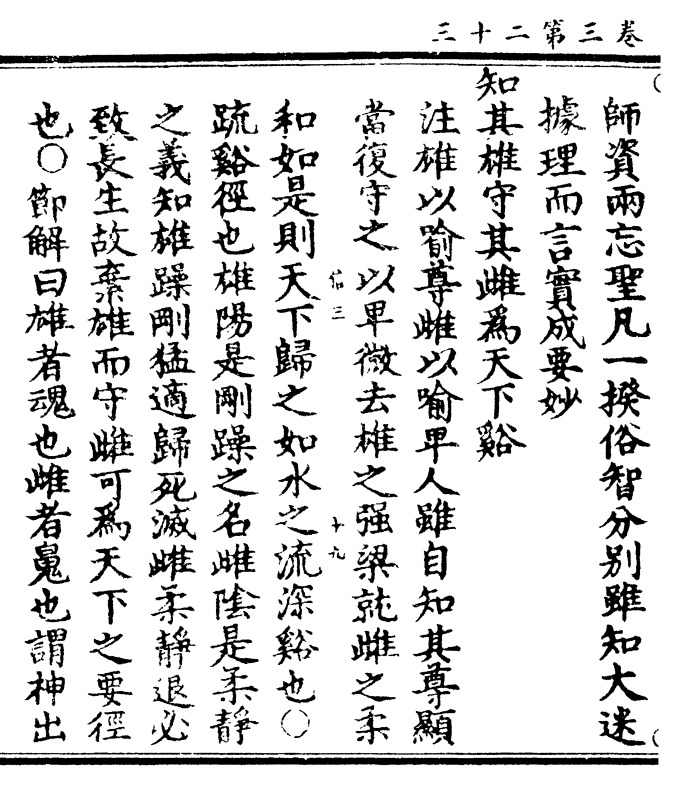 卷三第二十三
師資兩忘聖凡一揆俗智分别雖知大迷
據理而言實成要妙
知其雄守其雌爲天下谿
注雄以喻尊雌以喻卑人雖自知其尊顯
當復守之以卑微去雄之强梁就雌之柔
和如是則天下歸之如水之流深谿也〇
信三
十九
疏谿徑也雄陽是剛躁之名雌陰是柔靜
之義知雄躁剛猛適歸死滅雌柔靜退必
致長生故棄雄而守雌可爲天下之要徑
也〇節解曰雄者魂也雌者魄也謂神出